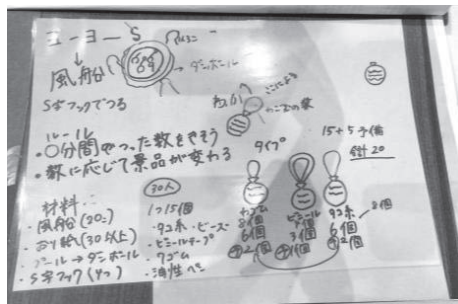 ヨーヨーS
風船
ダンボール
S字フックでつる
ルール
・○分間でつった数をきそう
・数に応じて景品が変わる
タイプ
15+5予備
合計20
材料:
30人
・風船(20コ)
・おり紙(30以上)
プール→ダンボール
・S字フック(4つ)
1つ15個
・タコ糸・ビーズ
・ビニールテープ
・ワゴム
・油性ペン
ワゴム
8個
6個
2個
ビニール
3個
タコ糸
8個
6個
2個